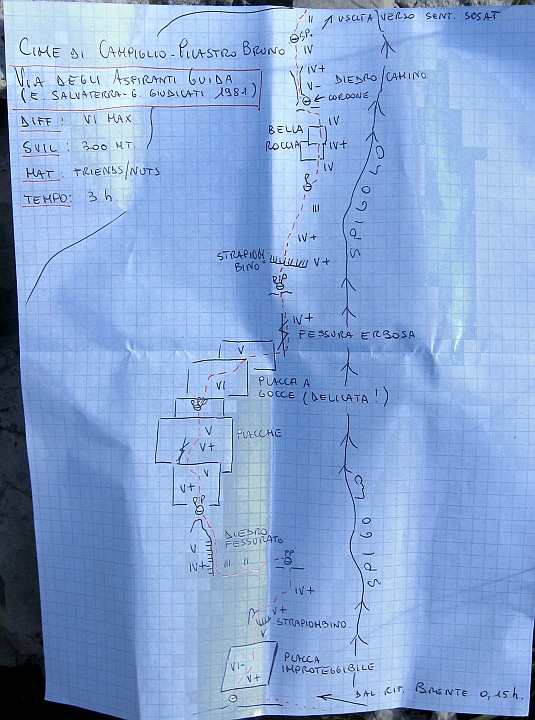 II
USCITA VERSO SENT. SOSAT
CIME DI CAMPIGLIO-PILASTRO BRUNO
VIA DEGLI ASPIRANTI GUIDA
(E. SALVATERRA-G. GIUDICATI 1981)
DIFF: VI MAX
SVIL: 300 MT.
MAT: FRIENDS/NUTS
TEMPO: 3 h.
SP.
IV
IV+
V-
DIEDRO/CAMINO
CORDONE
BELLA
ROCCIA
IV
IV+
IV
P
III
IV+
STRAPIOM
BINO
V+
PP
IV+
FESSURA ERBOSA
V
VI
PLACCA A
GOCCE (DELICATA!)
V
V+
PLACCHE
V
V+
PP
DIEDRO
FESSURATO
V
IV+
III
II
PP
IV+
V+
STRAPIOMBINO
V
VI-
V+
PLACCA
IMPROTEGGIBILE
SPIGOLO
SPIGOLO
DAL RIF. BRENTE 0,15h.